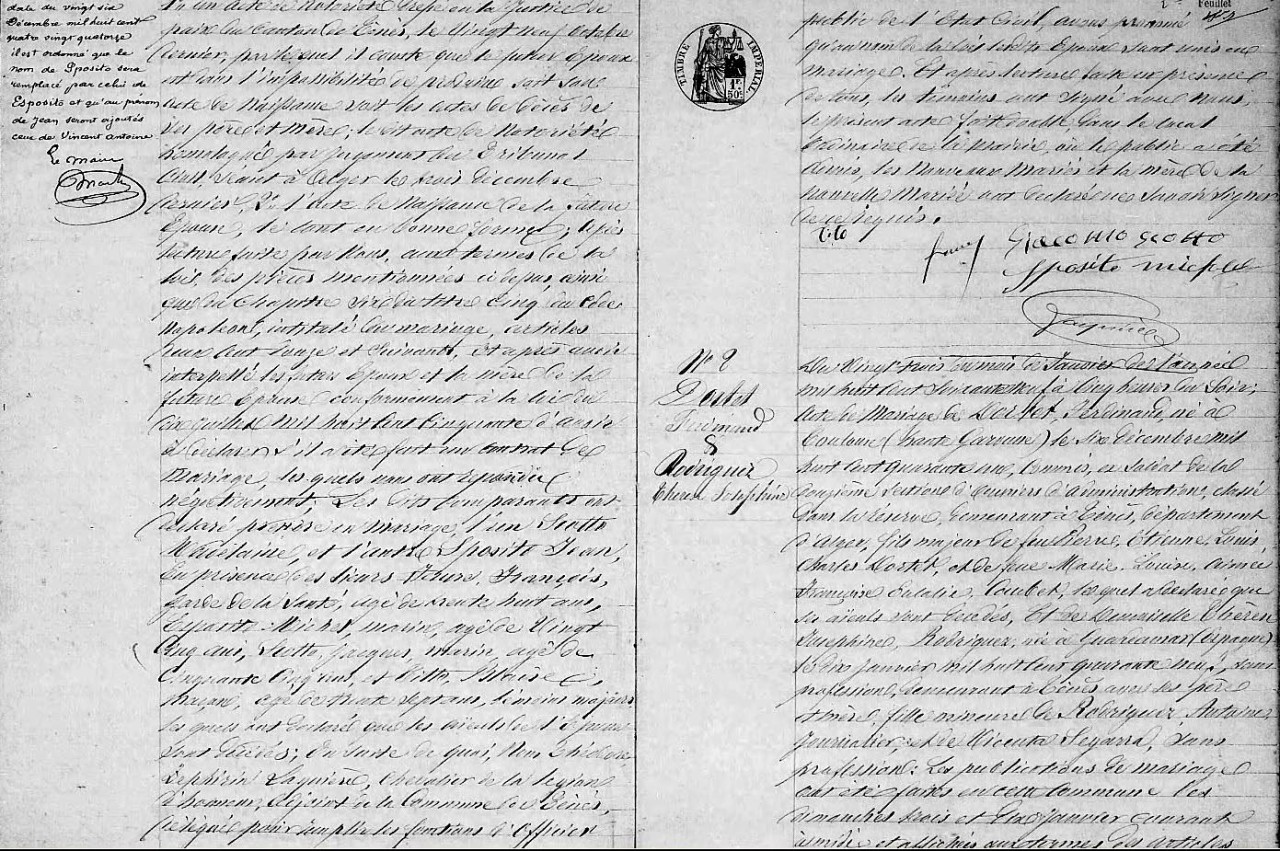 date du vingt six
Décembre mil huit cent
quatre vingt quatorze
il est ordonné que le
nom de Sposito sera
remplacé par celui de
Esposito et qu'au prénom
de Jean seront ajoutés
ceux de Vincent Antoine
Le Maire
un acte de Notoriété dressé en la Justice de
paix du Canton de Ténès, le vingt neuf octobre
dernier, par lequel il conste que le futur Epoux
est dans l'impossibilité de produire soit son
acte de Naissance soit les actes de décès de
ses père et mère; le dit acte de Notoriété
homologué par jugement du Tribunal
Civil séant à Alger le trois Décembre
dernier, l'acte de Naissance de la future
Epouse, le tout en bonne forme; après
lecture faite par Nous, aux termes de la
loi, des pièces mentionnées ci dessus, ainsi
que du Chapitre six du titre Cinq du Code
Napoléon, intitulé du mariage, articles
deux cent douze et suivants, et après avoir
interpellé les futurs Epoux et la mère de la
future Epouse conformément à la loi du
dix juillet mil huit cent cinquante d'avoir
à déclarer s'il a été fait un contrat de
Mariage, lesquels nous ont répondu
négativement, Les dits Comparants ont
déclaré prendre en mariage, l'un Scotto
et l'autre Sposito Jean,
En présence des Sieurs François,
garde de la Santé, agé de trente huit ans,
Sposito Michel, marin, agé de Vingt
Cinq ans, Scotto, Jacques, marin, agé de
Cinquante Cinq ans, et
maçon, agé de trente sept ans, témoins majeurs
lesquels ont déclaré que les aïeuls de l'Epouse
sont décédés; En suite de quoi, Nous
Zéphirin Laquière, Chevalier de la légion
d'honneur, adjoint de la Commune de Ténès,
délégué pour remplir les fonctions d'Officier
Feuillet
public de l'Etat Civil, avons prononcé
qu'au nom de la loi les dits Epoux sont unis en
mariage. Et après lecture faite en présence
de tous, les témoins ont signé avec Nous,
le présent acte fait double, dans le local
Ordinaire de la Mairie, où le public a été
admis, les Nouveaux Mariés et la mère de la
nouvelle Mariée ont déclaré ne savoir signer
de ce requis.
TIMBRE IMPERIAL
1 F. 50 c.
Giacomo Scotto
Sposito
Laquière
N° 2
Ferdinand
&
Rodriguez
Thérèse Joséphine
Du Vingt trois du mois de Janvier de l'année
mil huit cent soixante neuf à Cinq heures du Soir;
Acte de Mariage de Ferdinand, né à
Toulouse (haute Garonne) le six décembre mil
huit cent quarante un, Commis, ex Soldat de la
onzième Section d'Ouvriers d'administration, classé
dans la réserve, demeurant à Ténès, Département
d'Alger, fils majeur de feu Pierre, Etienne, Louis,
Charles et de feue Marie, Louise, Aimée
Françoise Eulalie, lequel a déclaré que
ses aïeuls sont décédés, Et de Demoiselle Thérèse
Joséphine, Rodriguez, née à (Espagne)
le dix janvier mil huit cent quarante neuf, sans
profession, demeurant à Ténès avec ses père
et mère, fille mineure de Rodriguez Antoine,
journalier, et de Vicenta Segarra, sans
profession. Les publications de mariage
ont été faites en cette Commune les
dimanches trois et dix janvier courant
à midi et affichées aux termes des articles